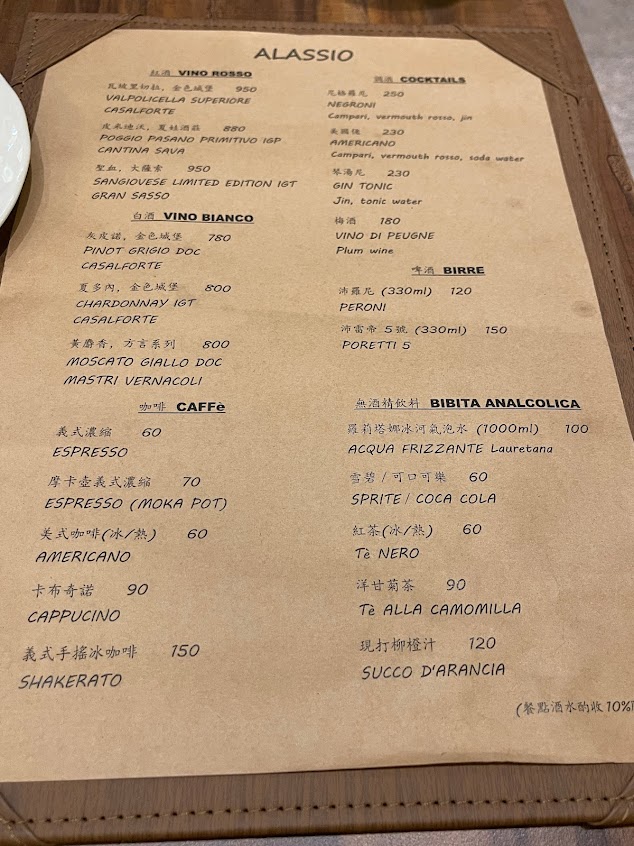 ALASSIO
紅酒 VINO ROSSO
瓦坡里切拉, 金色城堡 950
VALPOLICELLA SUPERIORE
CASALFORTE
皮米迪沃, 夏娃酒莊 880
POGGIO PASANO PRIMITIVO IGP
CANTINA SAVA
聖血, 大薩索 950
SANGIOVESE LIMITED EDITION IGT
GRAN SASSO
白酒 VINO BIANCO
灰皮諾, 金色城堡 780
PINOT GRIGIO DOC
CASALFORTE
夏多內, 金色城堡 800
CHARDONNAY IGT
CASALFORTE
黃麝香, 方言系列 800
MOSCATO GIALLO DOC
MASTRI VERNACOLI
咖啡 CAFFè
義式濃縮 60
ESPRESSO
摩卡壺義式濃縮 70
ESPRESSO (MOKA POT)
美式咖啡(冰/熱) 60
AMERICANO
卡布奇諾 90
CAPPUCINO
義式手搖冰咖啡 150
SHAKERATO
調酒 COCKTAILS
尼格羅尼 250
NEGRONI
Campari, vermouth rosso, jin
美國佬 230
AMERICANO
Campari, vermouth rosso, soda water
琴湯尼 230
GIN TONIC
Jin, tonic water
梅酒 180
VINO DI PEUGNE
Plum wine
啤酒 BIRRE
沛羅尼 (330ml) 120
PERONI
沛雷帝 5號 (330ml) 150
PORETTI 5
無酒精飲料 BIBITA ANALCOLICA
羅莉塔娜冰河氣泡水 (1000ml) 100
ACQUA FRIZZANTE Lauretana
雪碧/可口可樂 60
SPRITE / COCA COLA
紅茶(冰/熱) 60
Tè NERO
洋甘菊茶 90
Tè ALLA CAMOMILLA
現打柳橙汁 120
SUCCO D'ARANCIA
(餐點酒水酌收10%